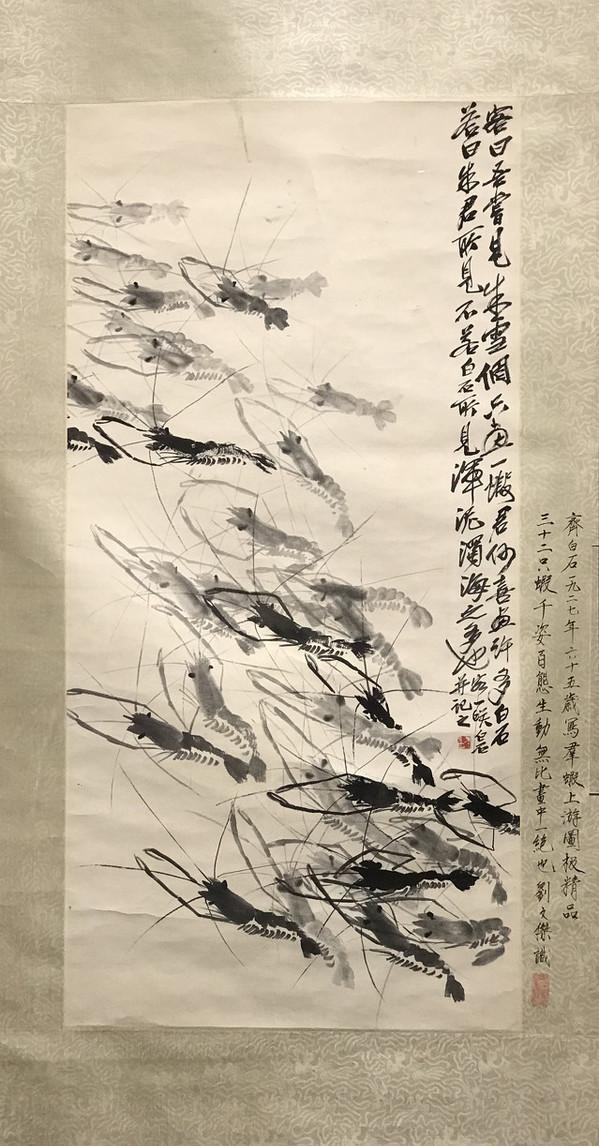 齊白石一九二七年六十五歲寫羣蝦上游圖極精品
三十二只蝦千姿百態生動無比畫中一絕也劉文傑識
客曰吾嘗見朱雪個只畫一蝦君何喜画許多白石
答曰朱君所見不若白石所見渾泥濁海之多也
客一笑白石
并記之